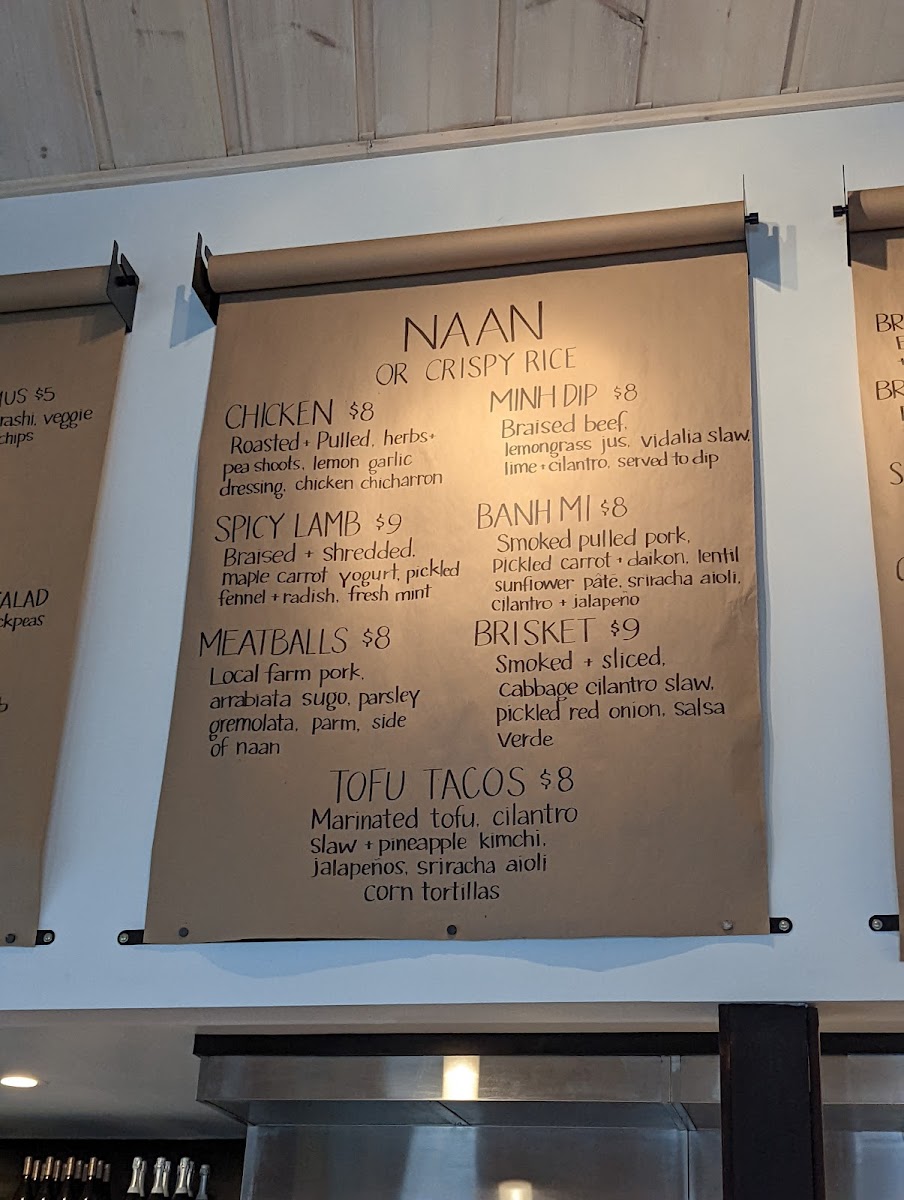 NAAN
OR CRISPY RICE
CHICKEN $8
Roasted + Pulled, herbs+
pea shoots, lemon garlic
dressing, chicken chicharron
SPICY LAMB $9
Braised + shredded,
maple carrot yogurt, pickled
fennel + radish, fresh mint
MEATBALLS $8
Local farm pork,
arrabiata sugo, parsley
gremolata, parm, side
of naan
MINH DIP $8
Braised beef,
lemongrass jus, Vidalia slaw,
lime + cilantro, served to dip
BANH MI $8
Smoked pulled pork,
Pickled carrot + daikon, lentil
sunflower pâté, sriracha aioli,
cilantro + jalapeño
BRISKET $9
Smoked + sliced,
cabbage cilantro slaw,
pickled red onion, salsa
verde
TOFU TACOS $8
Marinated tofu, cilantro
slaw + pineapple kimchi,
jalapeños, sriracha aioli
corn tortillas
$5
veggie
chips